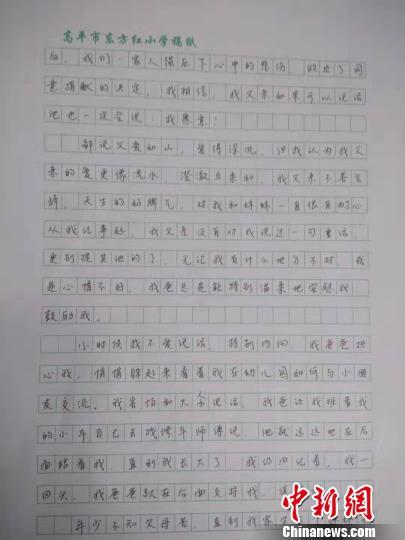 高平市东方红小学稿纸
后，我们一家人强忍下心中的悲伤 做出了同
意捐献的决定。我相信，我父亲如果可以说话
他也一定会说：我愿意！
都说父爱如山，爱得深沉，但我认为我父
亲的爱更像流水，澄澈且柔和，我父亲不善言
辞，天生的好脾气，对我和妹妹一直很有耐心
从我记事起，我父亲没有对我说过一句重话，
更别提其他的了，无论我有什么地方不对，我
是心情不好，我爸总是能特别温柔地安慰我，
鼓励我。
小时候我不爱说话，特别内向，我爸爸担
心我，悄悄躲起来看着我在幼儿园如何与小朋
友交流。我害怕和大人说话，我爸让我推着我
的小车自己去找修车师傅说，他就远远地在后
面跟着我，直到我长大了，我仍旧记着，我一
回头，我爸爸就在后面支持我，
年少不知父母苦，直到我
中新网